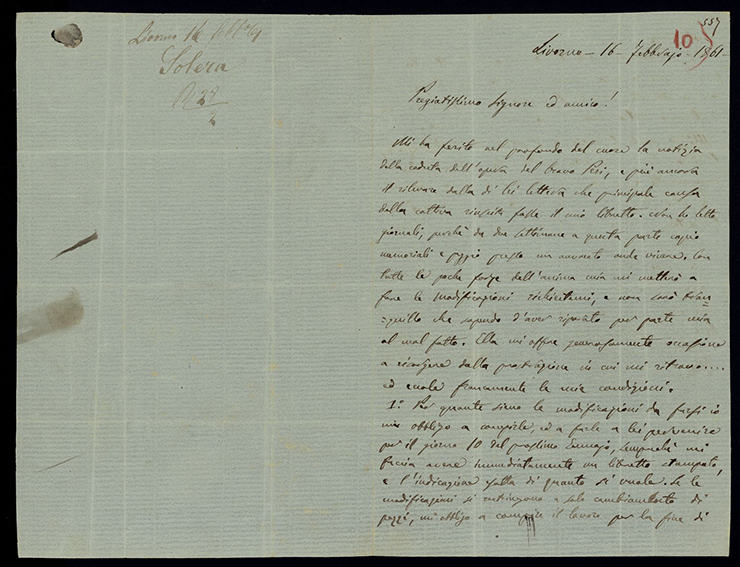 Livorno 16 febb° 61
Solera
R 22
2
557
10
Livorno - 16 - Febbrajo - 1861 -
Pregiatissimo Signore ed amico!
Mi ha ferito nel profondo del cuore la notizia
della caduta dell'opera del bravo Peri, e più ancora
il rilevare dalla di lei lettera che principale causa
della cattiva riuscita fosse il mio libretto. Non ho letto
giornali, perchè da due settimane a questa parte copio
memoriali e presso un avvocato onde vivere. Con
tutte le poche forze dell'anima mia mi metterò a
fare le modificazioni richiestemi, e non sarò tran=
=quillo che sapendo d'aver riparato per parte mia
al mal fatto. Ella mi offre generosamente occasione
a risorgere dalla prostrazione in cui mi ritrovo....
ed eccole francamente le mie condizioni.
1: Per quante sieno le modificazioni da farsi io
mi obbligo a compirle, ed a farle a lei pervenire
per il giorno 10 del prossimo, semprechè mi
faccia avere immediatamente un libretto stampato,
e l'indicazione esatta di quanto si vuole. Se le
modificazioni si restringono a solo cambiamento di
pezzi, mi obbligo a compire il lavoro per la fine di